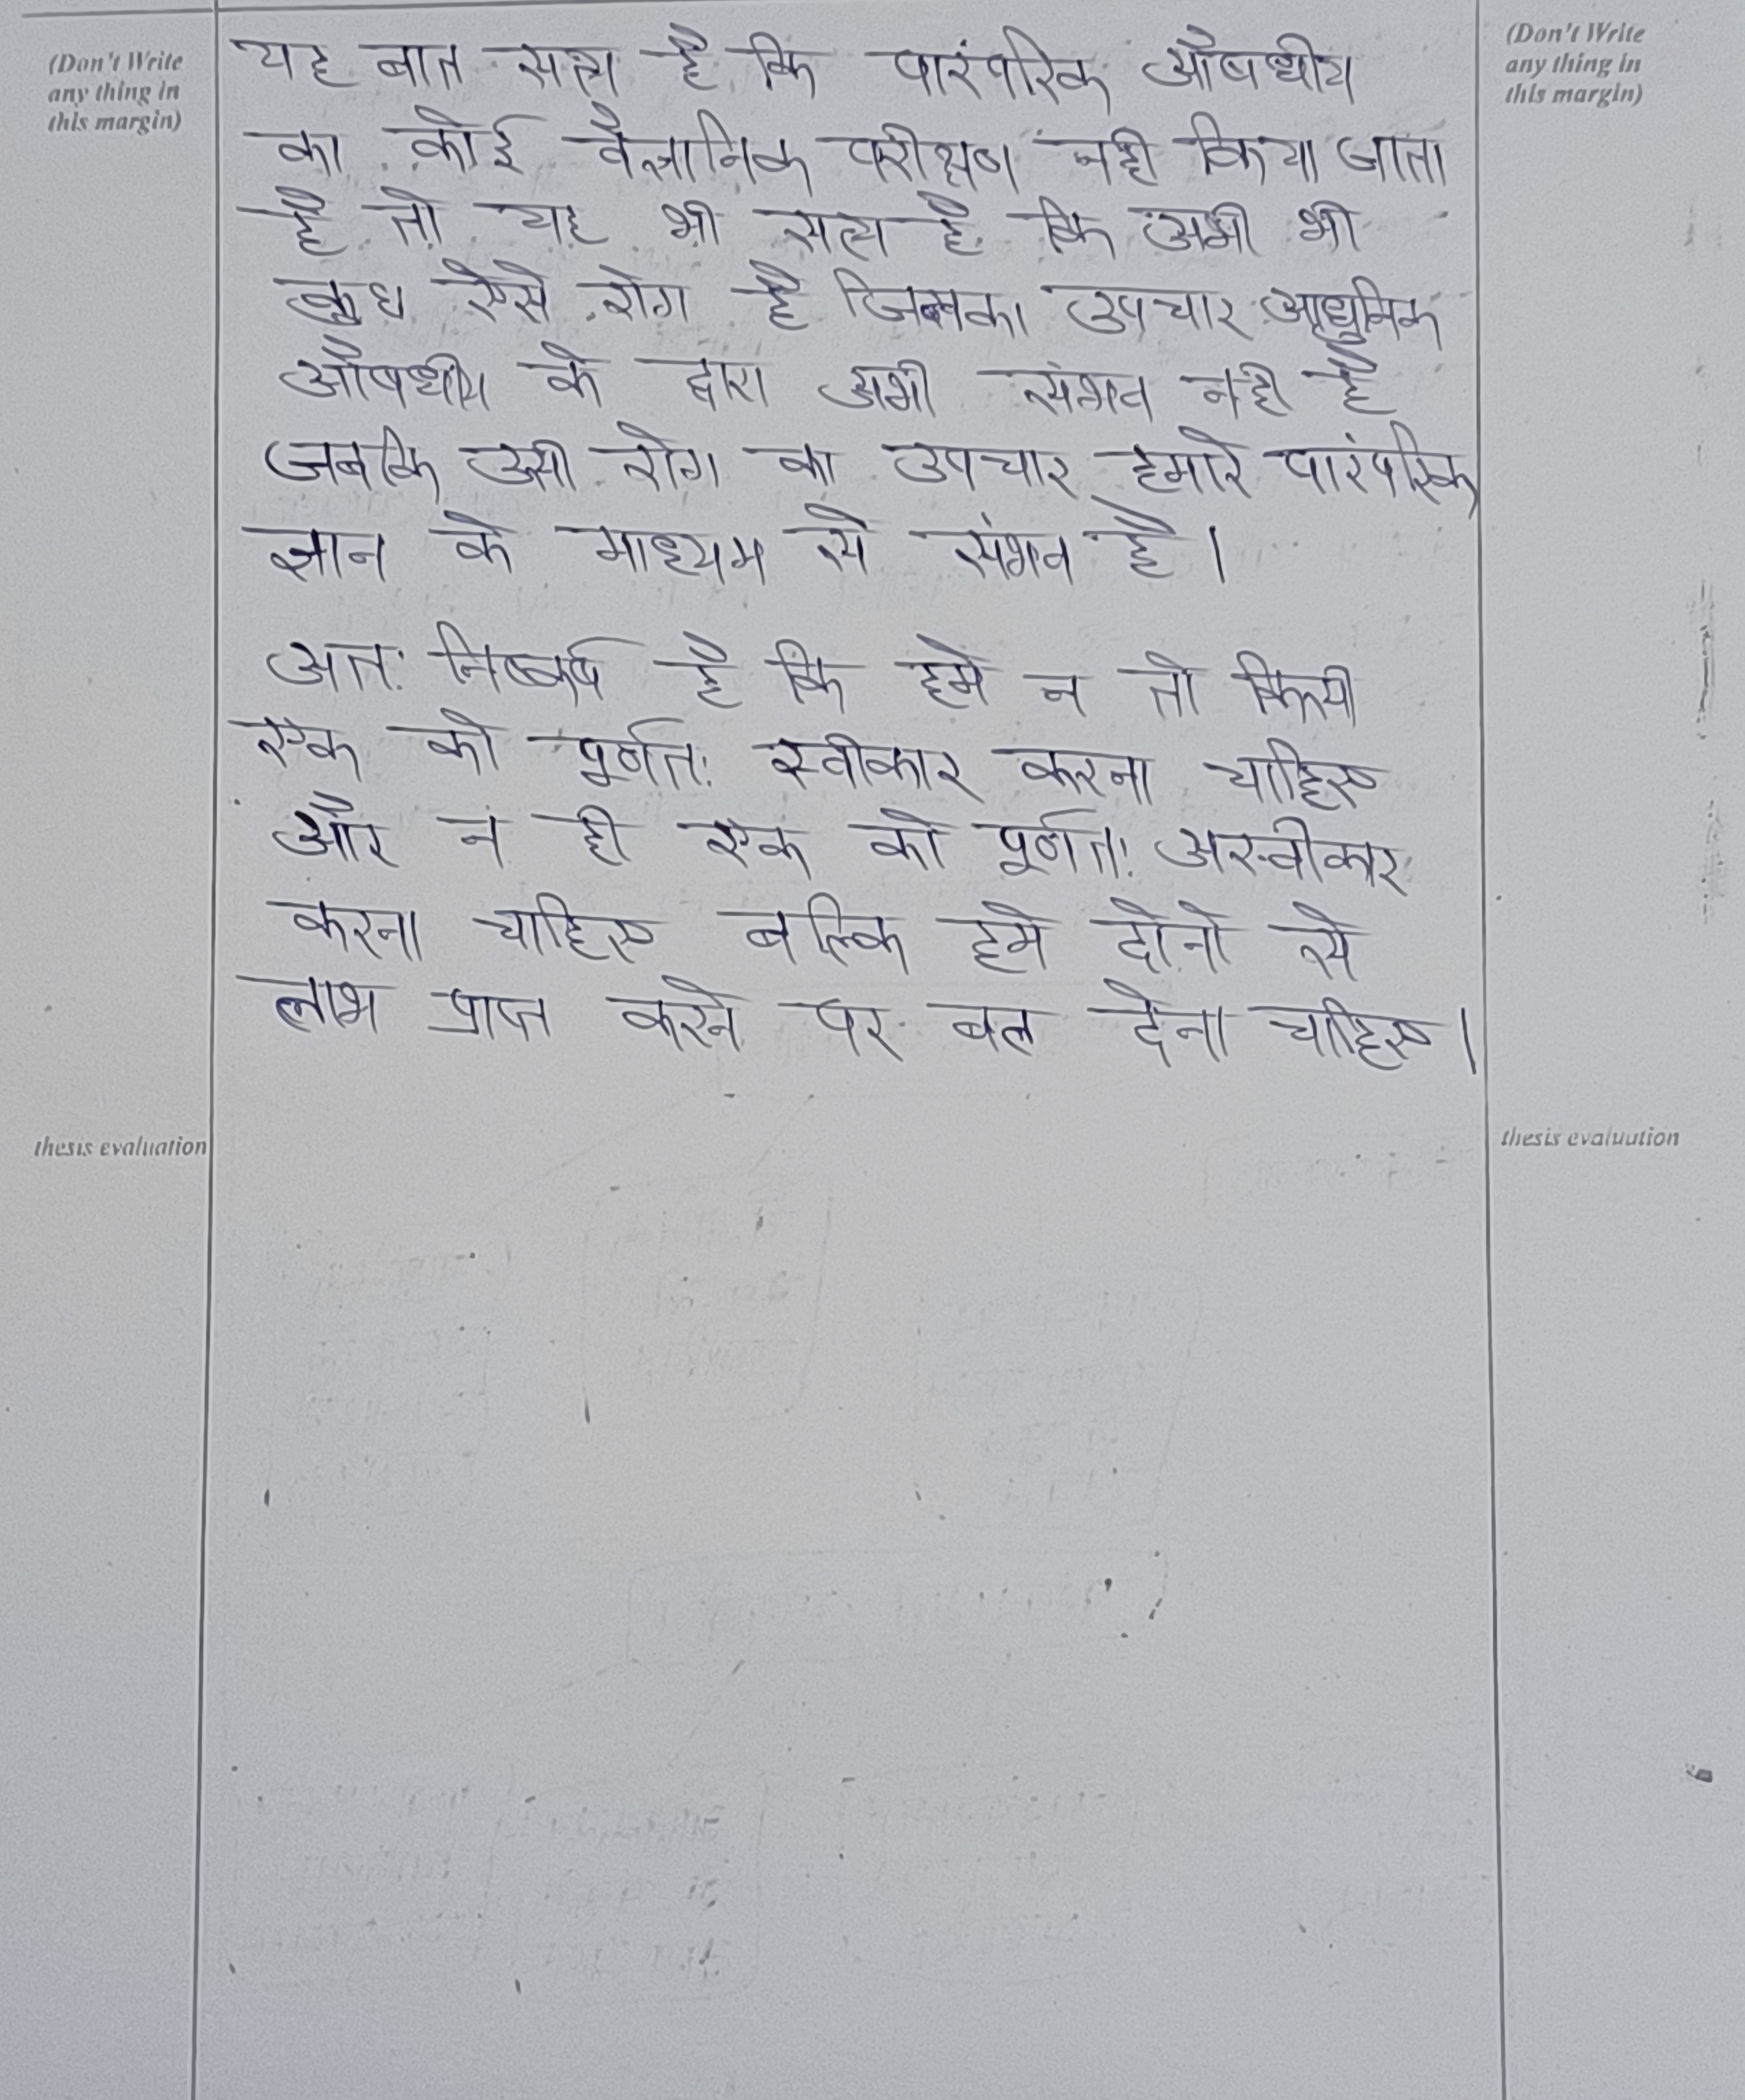 (Don't Write
any thing in
this margin)
(Don't Write
any thing in
this margin)
यह बात सत्य है कि पारंपरिक औषधीय
का कोई वैज्ञानिक परीक्षण नही किया जाता
है तो यह भी सत्य है कि अभी भी
कुछ ऐसे रोग है जिसका उपचार आधुनिक
औषधीय के द्वारा अभी संभव नही है
जबकि उसी रोग का उपचार हमारे पारंपरिक
ज्ञान के माध्यम से संभव है।
अतः निष्कर्ष है कि हमे न तो किसी
एक को पूर्णतः स्वीकार करना चाहिए
और न ही एक को पूर्णतः अस्वीकार
करना चाहिए बल्कि हमे दोनो से
लाभ प्राप्त करने पर बल देना चाहिए।
thesis evaluation
thesis evaluation